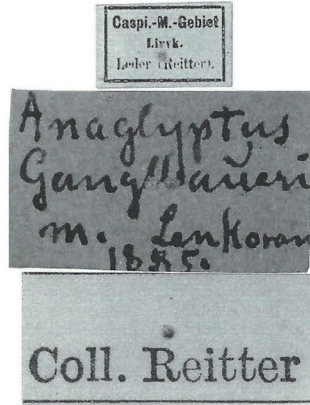 Caspi.-M.-Gebiet
Lirik.
Leder (Reitter).
Anaglyptus
Ganglbaueri
m. Lenkoran
1885.
Coll. Reitter